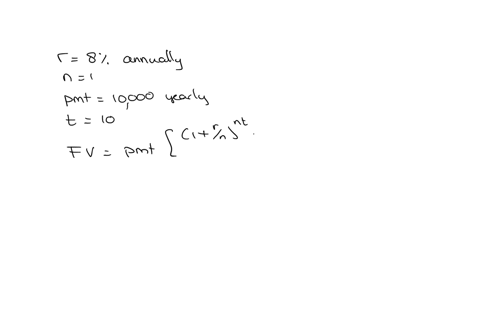 r = 8% annually
n = 1
pmt = 10,000 yearly
t = 10
FV = pmt [ (1 + r/n)^nt